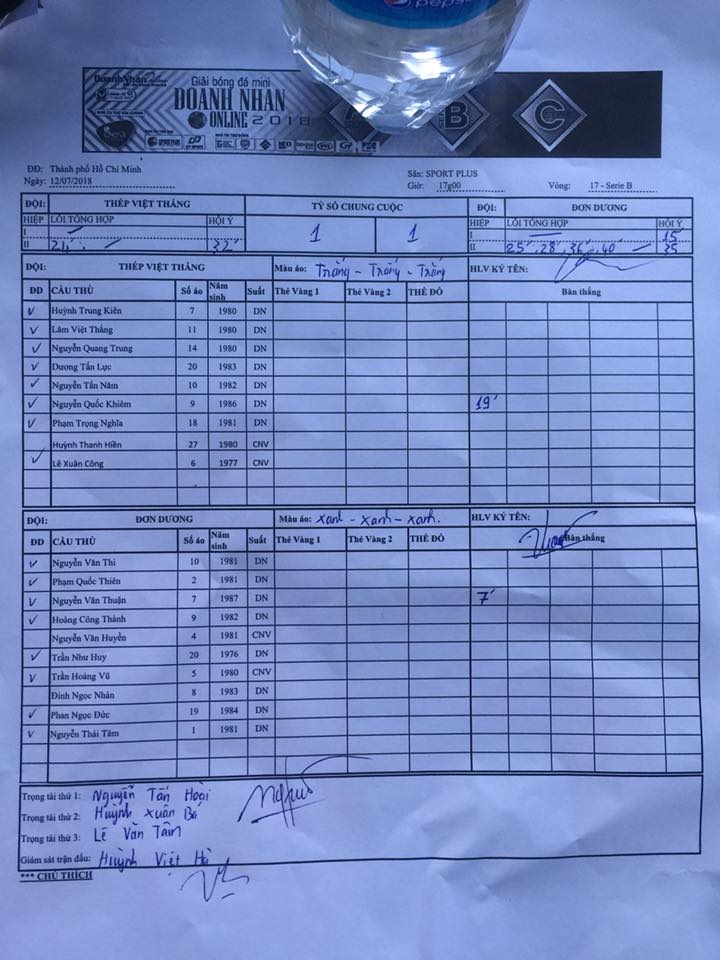 pepsi
DoanhNhan
Giải bóng đá mini
DOANH NHÂN
ONLINE 2018
A B C
ĐĐ: Thành phố Hồ Chí Minh Sân: SPORT PLUS
Ngày: 12/07/2018 Giờ: 17g00 Vòng: 17 - Serie B
ĐỘI: THÉP VIỆT THẮNG TỶ SỐ CHUNG CUỘC ĐỘI: ĐƠN DƯƠNG
HIỆP LỖI TỔNG HỢP HỘI Ý 1 1 HIỆP LỖI TỔNG HỢP HỘI Ý
I — I — 15'
II 21', — 32' II 25', 28', 36', 40' — 35
ĐỘI: THÉP VIỆT THẮNG Màu áo: Trắng - Trắng - Trắng HLV KÝ TÊN:
ĐD CẦU THỦ Số áo Năm sinh Suất Thẻ Vàng 1 Thẻ Vàng 2 THẺ ĐỎ Bàn thắng
v Huỳnh Trung Kiên 7 1980 DN
v Lâm Việt Thắng 11 1980 DN
v Nguyễn Quang Trung 14 1980 DN
v Dương Tấn Lực 20 1983 DN
v Nguyễn Tấn Năm 10 1982 DN
v Nguyễn Quốc Khiêm 9 1986 DN 19'
v Phạm Trọng Nghĩa 18 1981 DN
Huỳnh Thanh Hiền 27 1980 CNV
v Lê Xuân Công 6 1977 CNV
ĐỘI: ĐƠN DƯƠNG Màu áo: xanh - xanh - xanh. HLV KÝ TÊN:
ĐD CẦU THỦ Số áo Năm sinh Suất Thẻ Vàng 1 Thẻ Vàng 2 THẺ ĐỎ Bàn thắng
v Nguyễn Văn Thi 10 1981 DN
v Phạm Quốc Thiên 2 1981 DN
v Nguyễn Văn Thuận 7 1987 DN 7'
v Hoàng Công Thành 9 1982 DN
Nguyễn Văn Huyền 4 1981 CNV
v Trần Như Huy 20 1976 DN
v Trần Hoàng Vũ 5 1980 CNV
Đinh Ngọc Nhân 8 1983 DN
v Phan Ngọc Đức 19 1984 DN
v Nguyễn Thái Tâm 1 1981 DN
Trọng tài thứ 1: Nguyễn Tấn Hoài
Trọng tài thứ 2: Huỳnh Xuân Bá
Trọng tài thứ 3: Lê Văn Tâm
Giám sát trận đấu: Huỳnh Việt Hà
*** CHÚ THÍCH